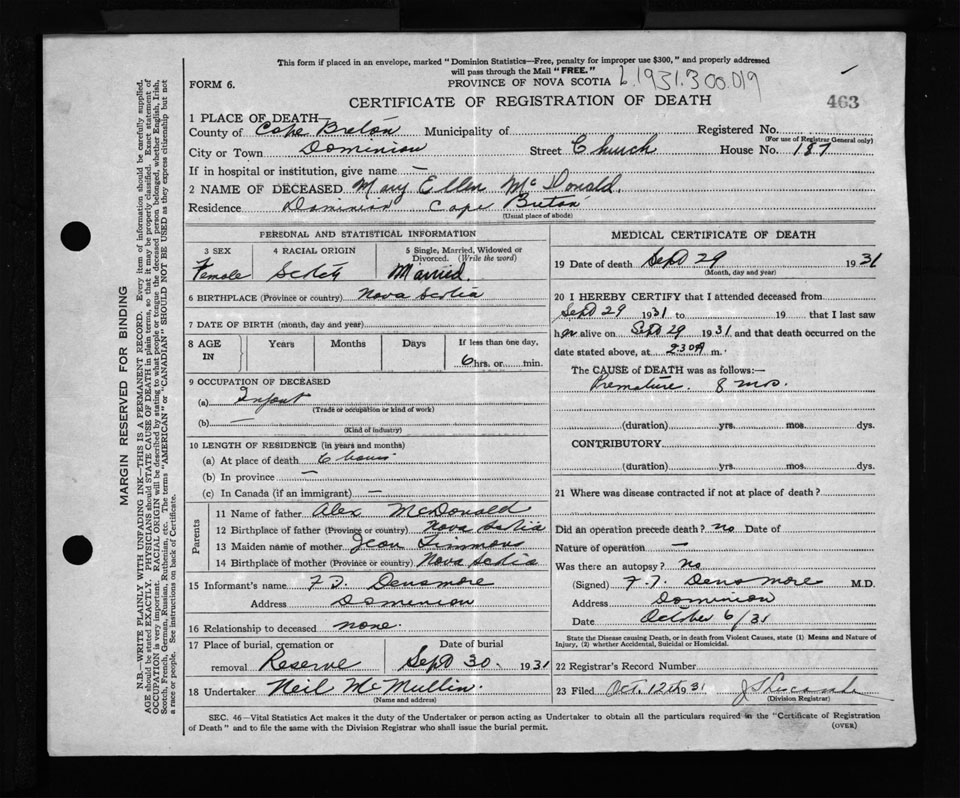 This form if placed in an envelope, marked "Dominion Statistics—Free, penalty for improper use $300," and properly addressed
will pass through the Mail "FREE."
FORM 6.
PROVINCE OF NOVA SCOTIA
1931.300.019
CERTIFICATE OF REGISTRATION OF DEATH
463
1 PLACE OF DEATH—
County of Cape Breton Municipality of Registered No.
(For use of Registrar General only)
City or Town Dominion Street Church House No. 187
If in hospital or institution, give name —
2 NAME OF DECEASED Mary Ellen McDonald.
Residence Dominion Cape Breton
(Usual place of abode)
PERSONAL AND STATISTICAL INFORMATION
3 SEX 4 RACIAL ORIGIN 5 Single, Married, Widowed or
Divorced. (Write the word)
Female Scotch Married
6 BIRTHPLACE (Province or country) Nova Scotia
7 DATE OF BIRTH (month, day and year)
8 AGE IN Years Months Days If less than one day,
6 hrs. or min.
9 OCCUPATION OF DECEASED
(a) Infant
(Trade or occupation or kind of work)
(b) —
(Kind of industry)
10 LENGTH OF RESIDENCE (in years and months)
(a) At place of death 6 hours
(b) In province —
(c) In Canada (if an immigrant) —
Parents
11 Name of father Alex McDonald
12 Birthplace of father (Province or country) Nova Scotia
13 Maiden name of mother Jean Timmons
14 Birthplace of mother (Province or country) Nova Scotia
15 Informant's name F. T. Densmore
Address Dominion
16 Relationship to deceased none.
17 Place of burial, cremation or Date of burial
removal Reserve Sept 30. 1931
18 Undertaker Neil McMullin.
(Name and address)
MEDICAL CERTIFICATE OF DEATH
19 Date of death Sept 29 1931
(Month, day and year)
20 I HEREBY CERTIFY that I attended deceased from
Sept 29 1931 to 19 that I last saw
her alive on Sept 29 1931 and that death occurred on the
date stated above, at 230 A m.
The CAUSE of DEATH was as follows:—
Premature. 8 mos.
(duration) yrs. mos. dys.
CONTRIBUTORY
(duration) yrs. mos. dys.
21 Where was disease contracted if not at place of death?
Did an operation precede death? no Date of
Nature of operation —
Was there an autopsy? no
(Signed) F. T. Densmore M.D.
Address Dominion
Date October 6/31
State the Disease causing Death, or in death from Violent Causes, state (1) Means and Nature of
Injury, (2) whether Accidental, Suicidal or Homicidal.
22 Registrar's Record Number
23 Filed Oct. 12th 1931
(Division Registrar)
SEC. 46—Vital Statistics Act makes it the duty of the Undertaker or person acting as Undertaker to obtain all the particulars required in the "Certificate of Registration
of Death" and to file the same with the Division Registrar who shall issue the burial permit.
(OVER)
MARGIN RESERVED FOR BINDING
N.B.—WRITE PLAINLY WITH UNFADING INK—THIS IS A PERMANENT RECORD. Every item of information should be carefully supplied.
AGE should be stated EXACTLY. PHYSICIANS should STATE CAUSE OF DEATH in plain terms, so that it may be properly classified. Exact statement of
OCCUPATION is very important. RACIAL ORIGIN will be described by stating to what people or tongue the deceased person belonged, whether English, Irish,
Scotch, French, German, Russian, Ruthenian, etc. The terms "AMERICAN" or "CANADIAN" SHOULD NOT BE USED as they express citizenship but not
a race or people. See instructions on back of Certificate.